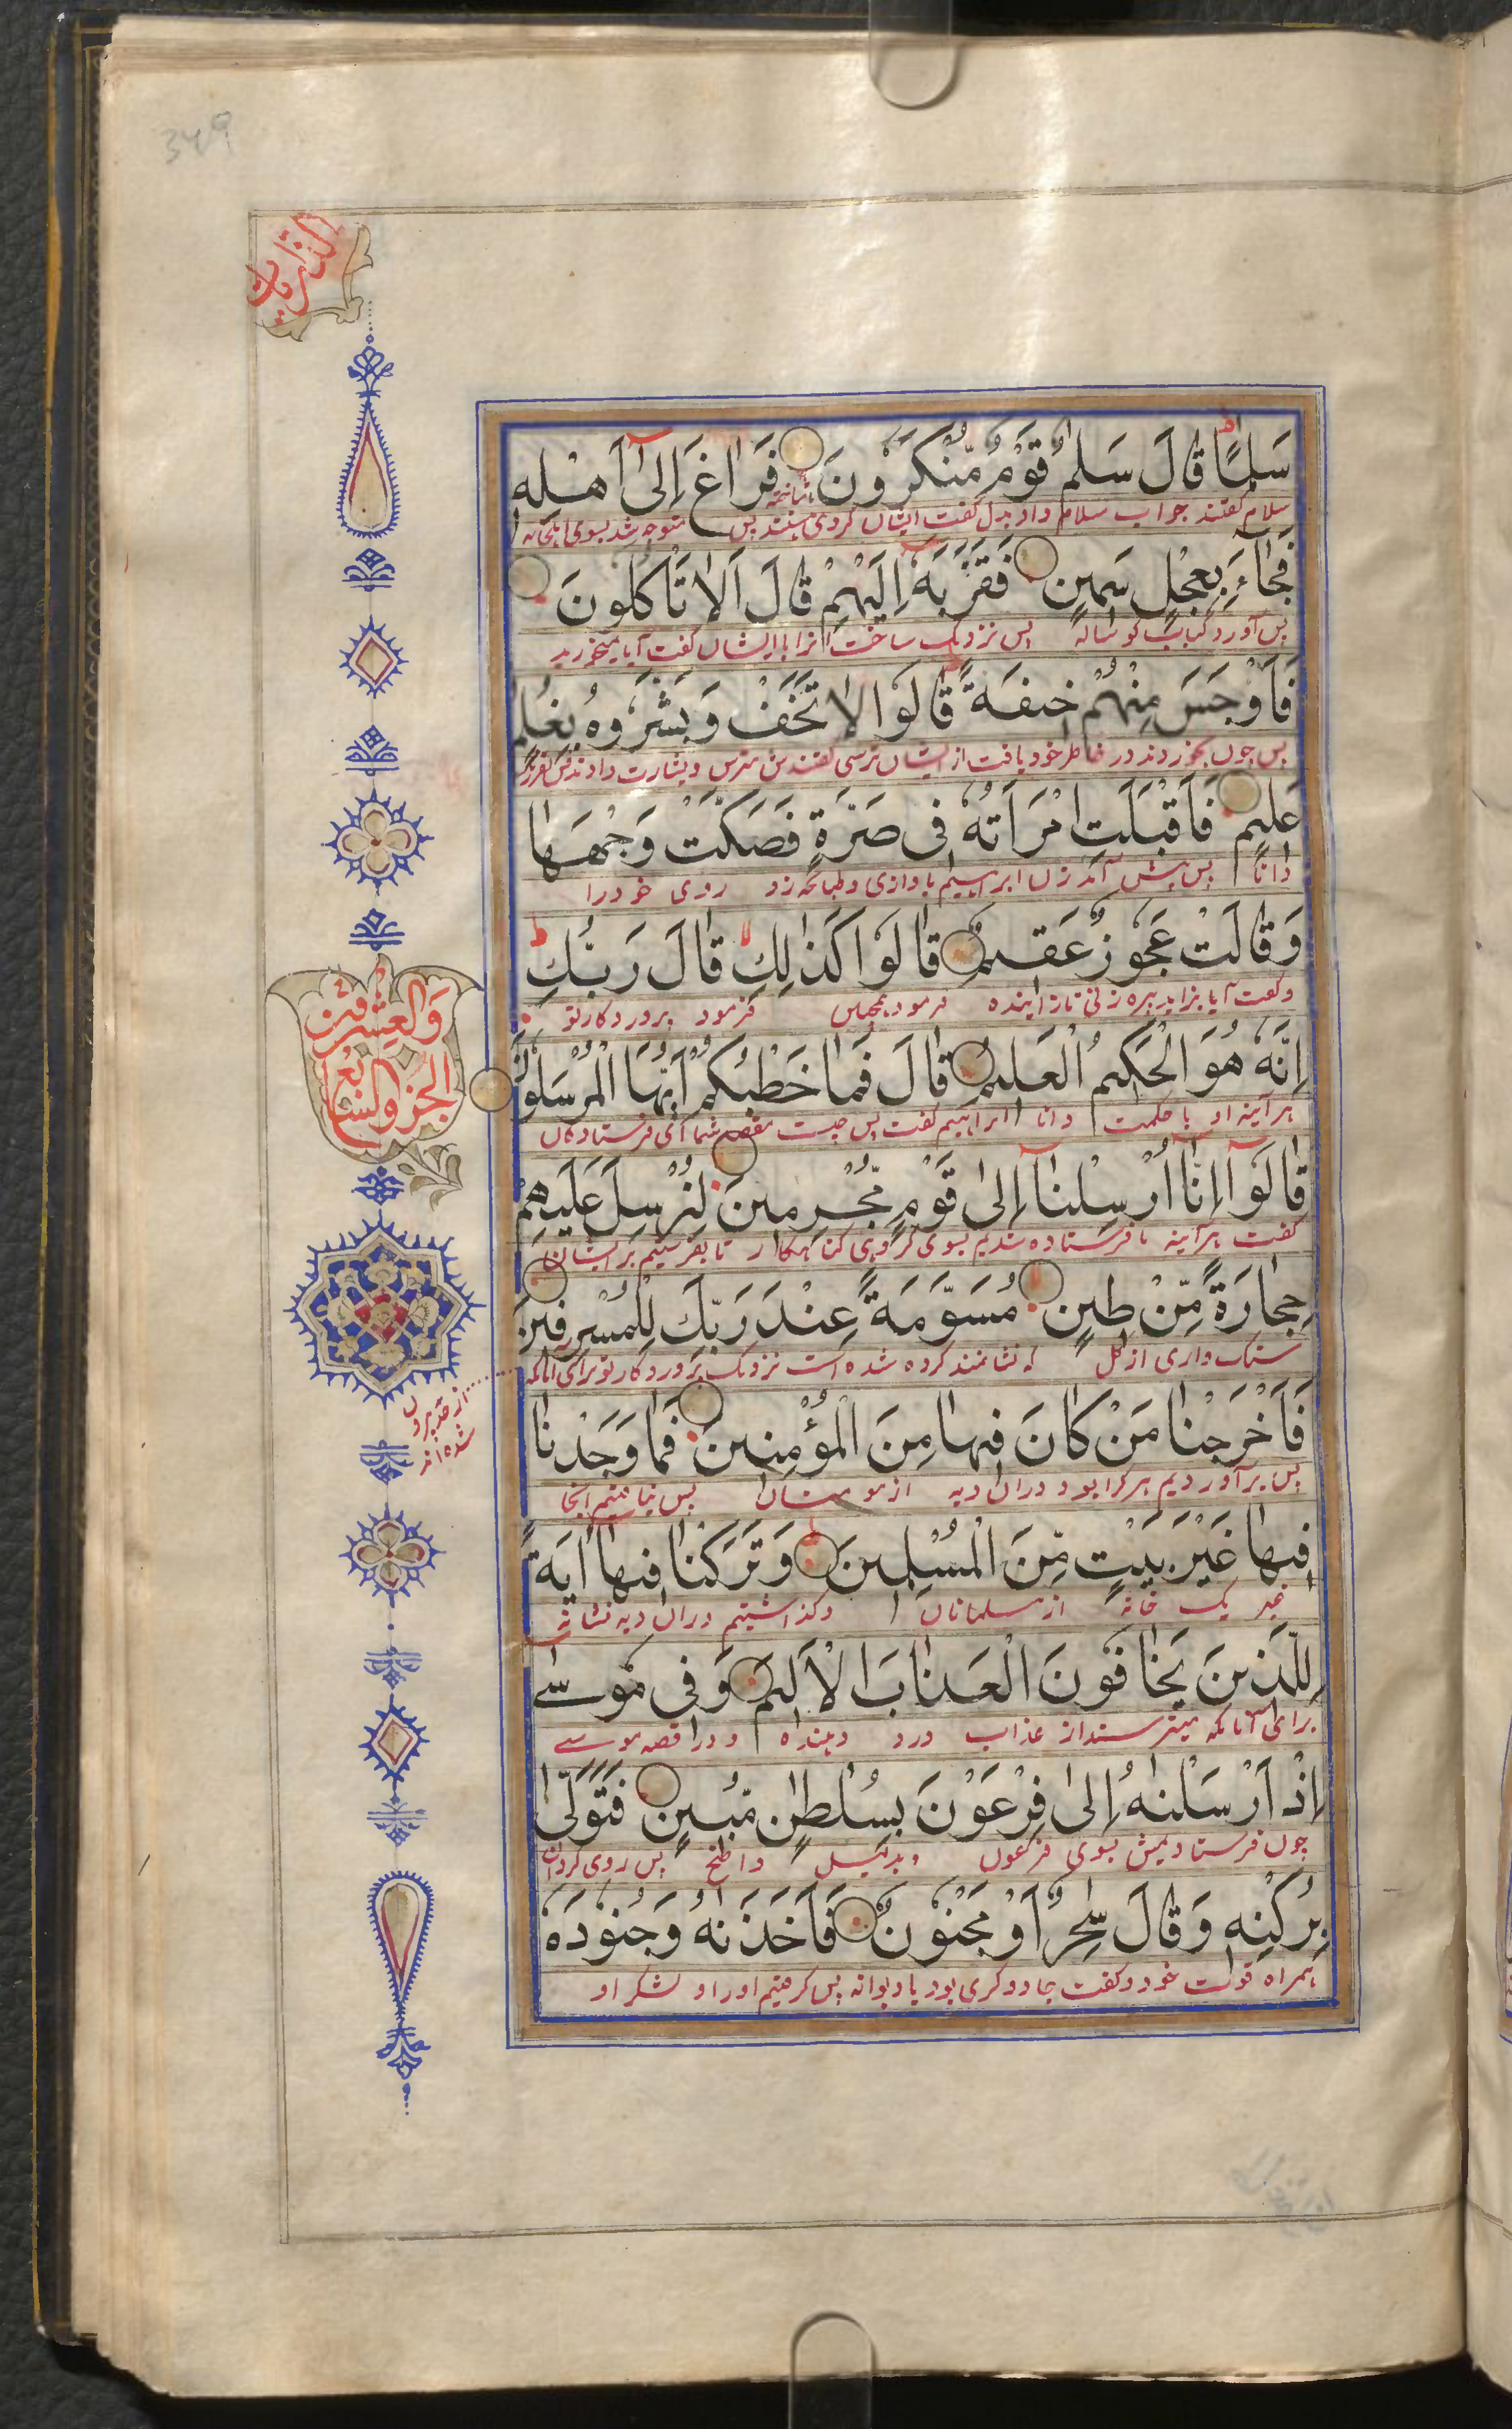 349
الذّٰریٰت
سَلٰمًا قَالَ سَلٰمٌ قَوْمٌ مُّنْكَرُوْنَ فَرَاغَ اِلٰٓى اَهْلِهٖ
سلام گفتند جواب سلام داد بدل گفت ایشان گروهی هستند ناشناخته پس متوجه شد بسوی اهل خانه
فَجَآءَ بِعِجْلٍ سَمِیْنٍ فَقَرَّبَهٗٓ اِلَیْهِمْ قَالَ اَلَا تَاْكُلُوْنَ
پس آورد کباب گوساله پس نزدیک ساخت آنرا باایشان گفت آیا نمیخورید
فَاَوْجَسَ مِنْهُمْ خِیْفَةً قَالُوْا لَا تَخَفْ وَبَشَّرُوْهُ بِغُلٰمٍ
پس چون نخوردند در خاطر خود یافت از ایشان ترسی گفتندش مترس و بشارت دادندش بفرزند
عَلِیْمٍ فَاَقْبَلَتِ امْرَاَتُهٗ فِیْ صَرَّةٍ فَصَكَّتْ وَجْهَهَا
دانا پس پیش آمد زن ابراهیم باوازی و طپانچه زد روی خود را
وَقَالَتْ عَجُوْزٌ عَقِیْمٌ قَالُوْا كَذٰلِكِ قَالَ رَبُّكِ
و گفت آیا بزاید پیره زنی نازاینده فرمود همچنین فرمود پروردگار تو
اِنَّهٗ هُوَ الْحَكِیْمُ الْعَلِیْمُ قَالَ فَمَا خَطْبُكُمْ اَیُّهَا الْمُرْسَلُوْنَ
هر آئینه او با حکمت دانا ابراهیم گفت پس چیست مقصد شما ای فرستادگان
والعشرین
الجزء السابع
قَالُوْٓا اِنَّآ اُرْسِلْنَآ اِلٰى قَوْمٍ مُّجْرِمِیْنَ لِنُرْسِلَ عَلَیْهِمْ
گفت هر آئینه ما فرستاده شدیم بسوی گروهی گناهکار تا بفرستیم بر ایشان
حِجَارَةً مِّنْ طِیْنٍ مُسَوَّمَةً عِنْدَ رَبِّكَ لِلْمُسْرِفِیْنَ
سنگ واری از گل که نشانمند کرده شده است نزدیک پروردگار تو برای آنانکه
از حد بیرون
شده اند
فَاَخْرَجْنَا مَنْ كَانَ فِیْهَا مِنَ الْمُؤْمِنِیْنَ فَمَا وَجَدْنَا
پس برآوردیم هر کرا بود دران دیه از مومنان پس نیافتیم آنجا
فِیْهَا غَیْرَ بَیْتٍ مِّنَ الْمُسْلِمِیْنَ وَتَرَكْنَا فِیْهَآ اٰیَةً
غیر یک خانه از مسلمانان و گذاشتیم دران دیه نشانه
لِّلَّذِیْنَ یَخَافُوْنَ الْعَذَابَ الْاَلِیْمَ وَفِیْ مُوْسٰٓى
برای آنانکه میترسند از عذاب درد دهنده و در قصه موسے
اِذْ اَرْسَلْنٰهُ اِلٰى فِرْعَوْنَ بِسُلْطٰنٍ مُّبِیْنٍ فَتَوَلّٰى
چون فرستادیمش بسوی فرعون بدلیل واضح پس روی گردان
بِرُكْنِهٖ وَقَالَ سٰحِرٌ اَوْ مَجْنُوْنٌ فَاَخَذْنٰهُ وَجُنُوْدَهٗ
همراه قوت خود و گفت جادوگری بود یا دیوانه پس گرفتیم او را و لشکر او